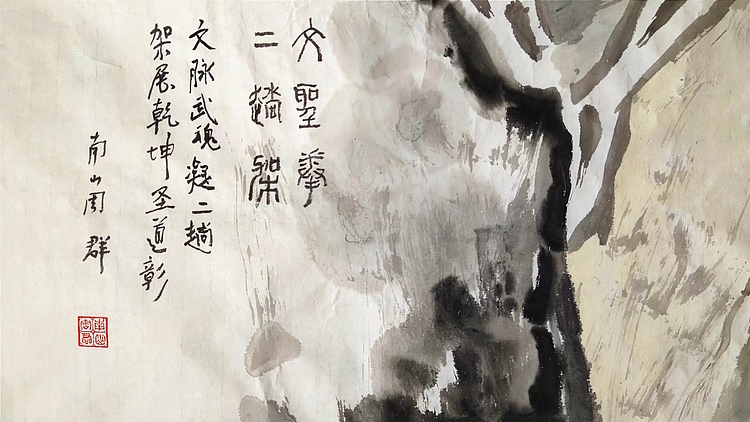 文聖拳
二趟架
文脉武魂凝二趟
架展乾坤圣道彰
南山周群